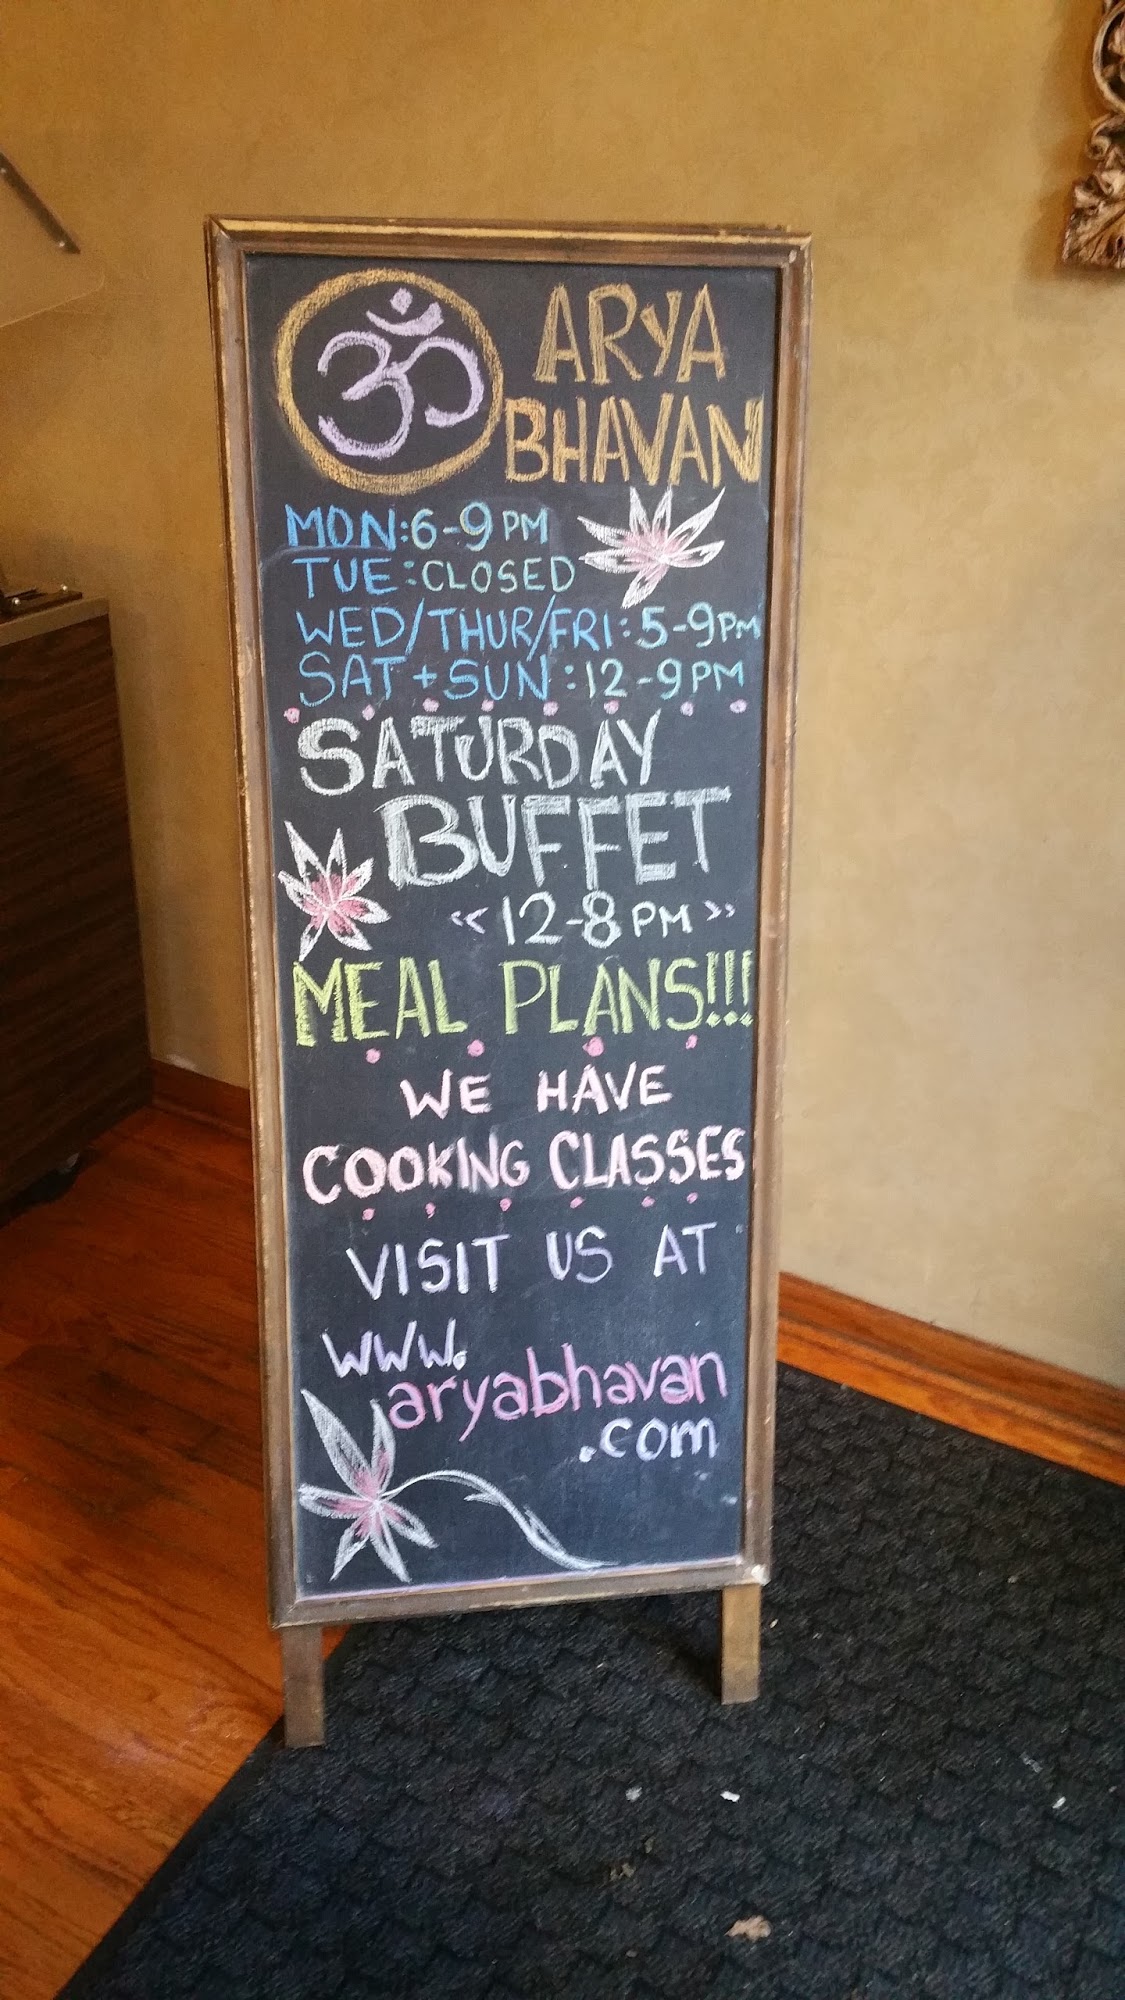 ॐ ARYA
BHAVAN
MON:6-9PM
TUE:CLOSED
WED/THUR/FRI:5-9PM
SAT+SUN:12-9PM
SATURDAY
BUFFET
<<12-8PM>>
MEAL PLANS!!!
WE HAVE
COOKING CLASSES
VISIT US AT
WWW.
aryabhavan
.com